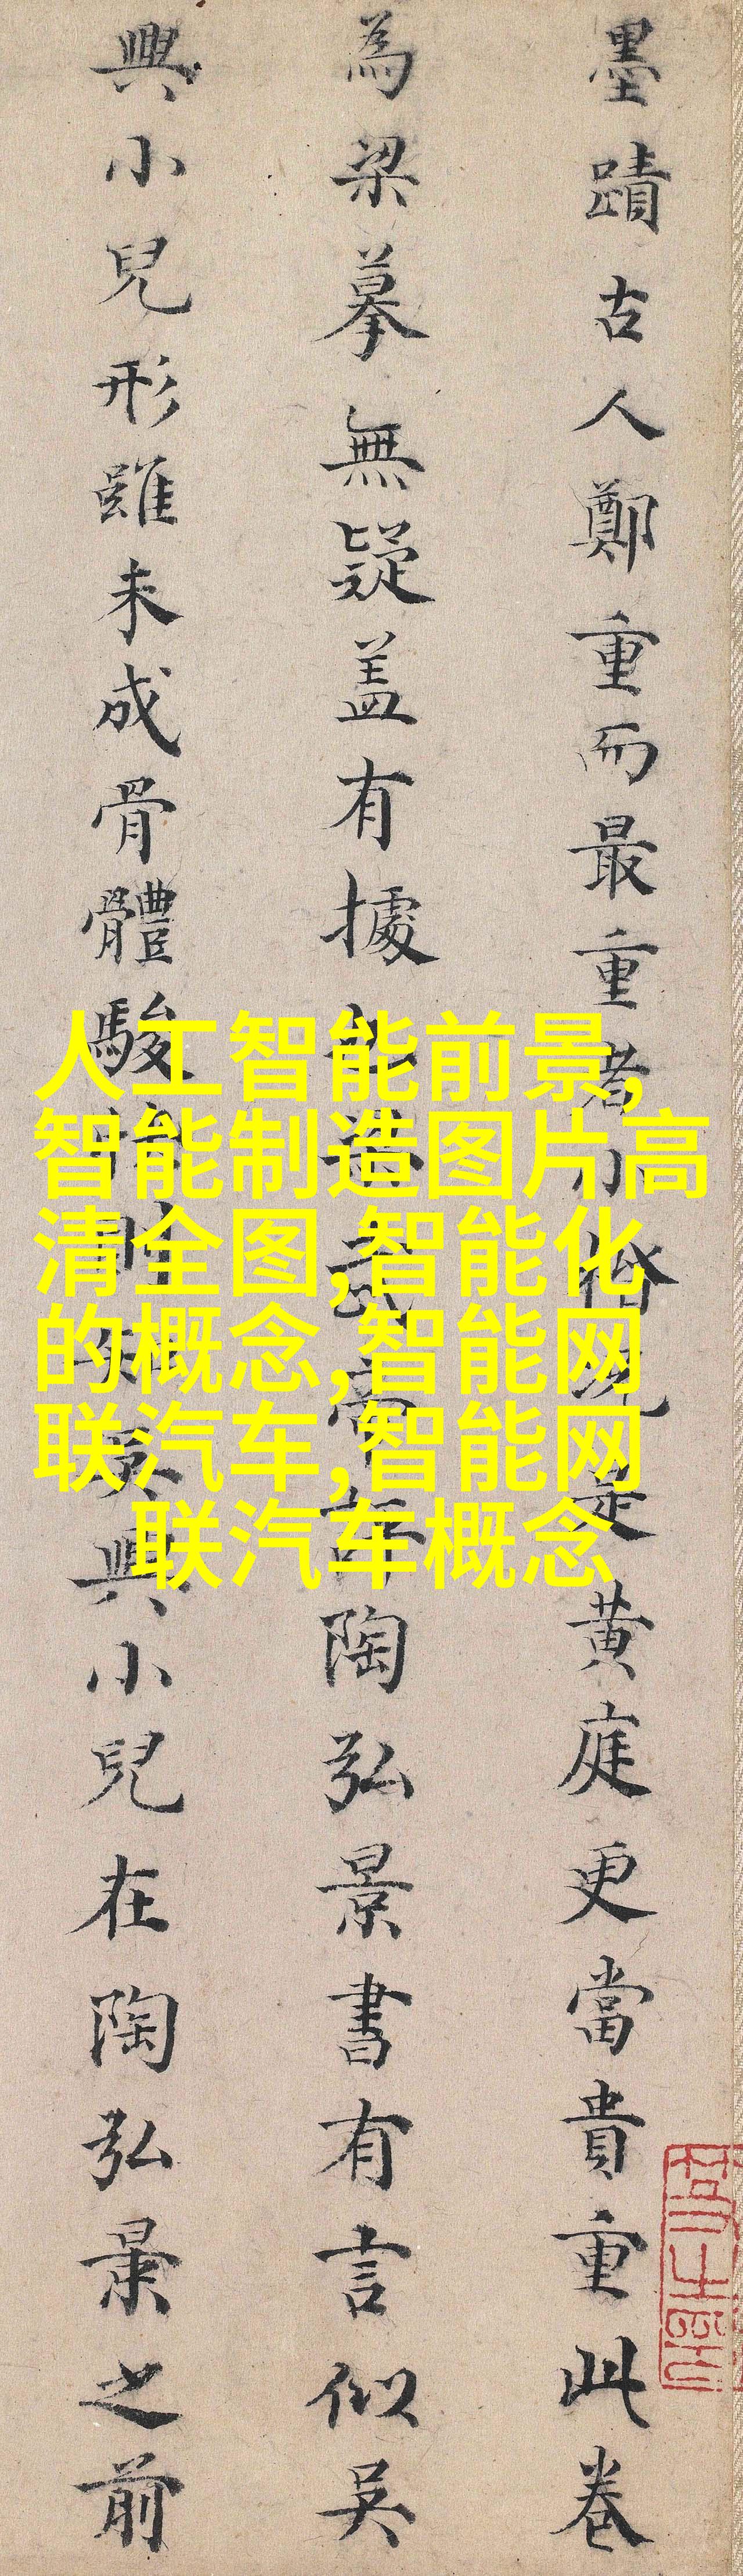 墨蹟古人鄭重而最重者小楷況是黄庭更當貴重此卷
為梁摹無疑盖有據武帝評陶弘景書有言似吳
興小兒形雖未成骨體駿快則知吳興小兒在陶弘景之前
人工智能前景,
智能制造图片高
清全图,智能化
的概念,智能网
联汽车,智能网
联汽车概念